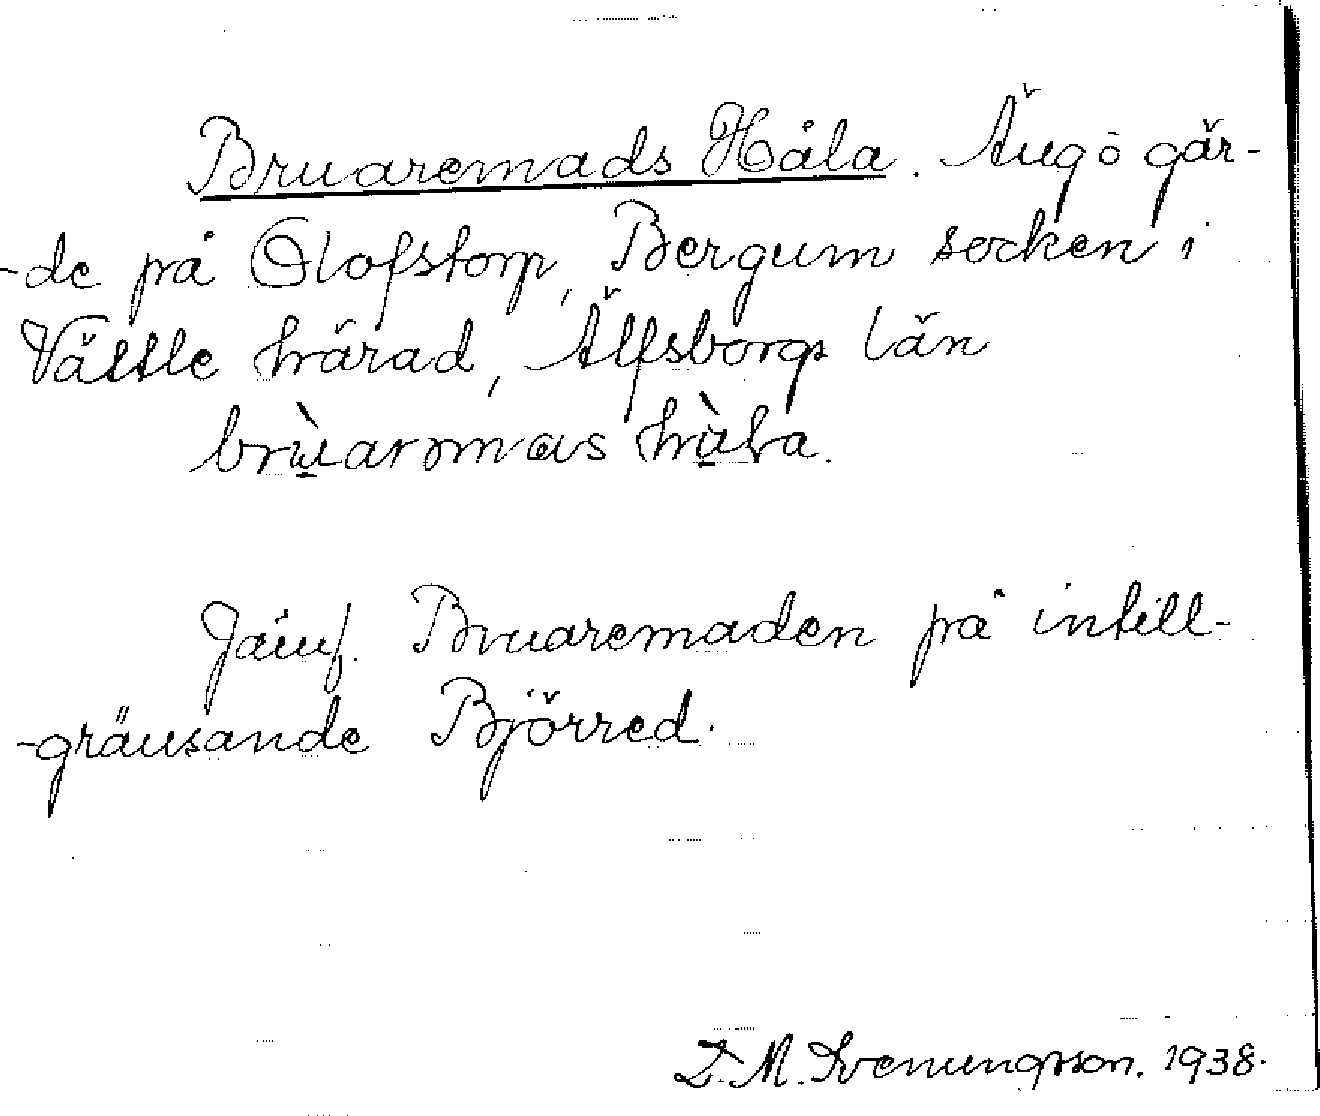 Bruaremads Håla. Äng o gär-
-de på Olofstorp, Bergum socken i
Vättle härad, Älfsborgs län
brùarmas hàla.
Jämf. Bruaremaden på intill-
-gränsande Björred.
D. M. Svenungsson. 1938.